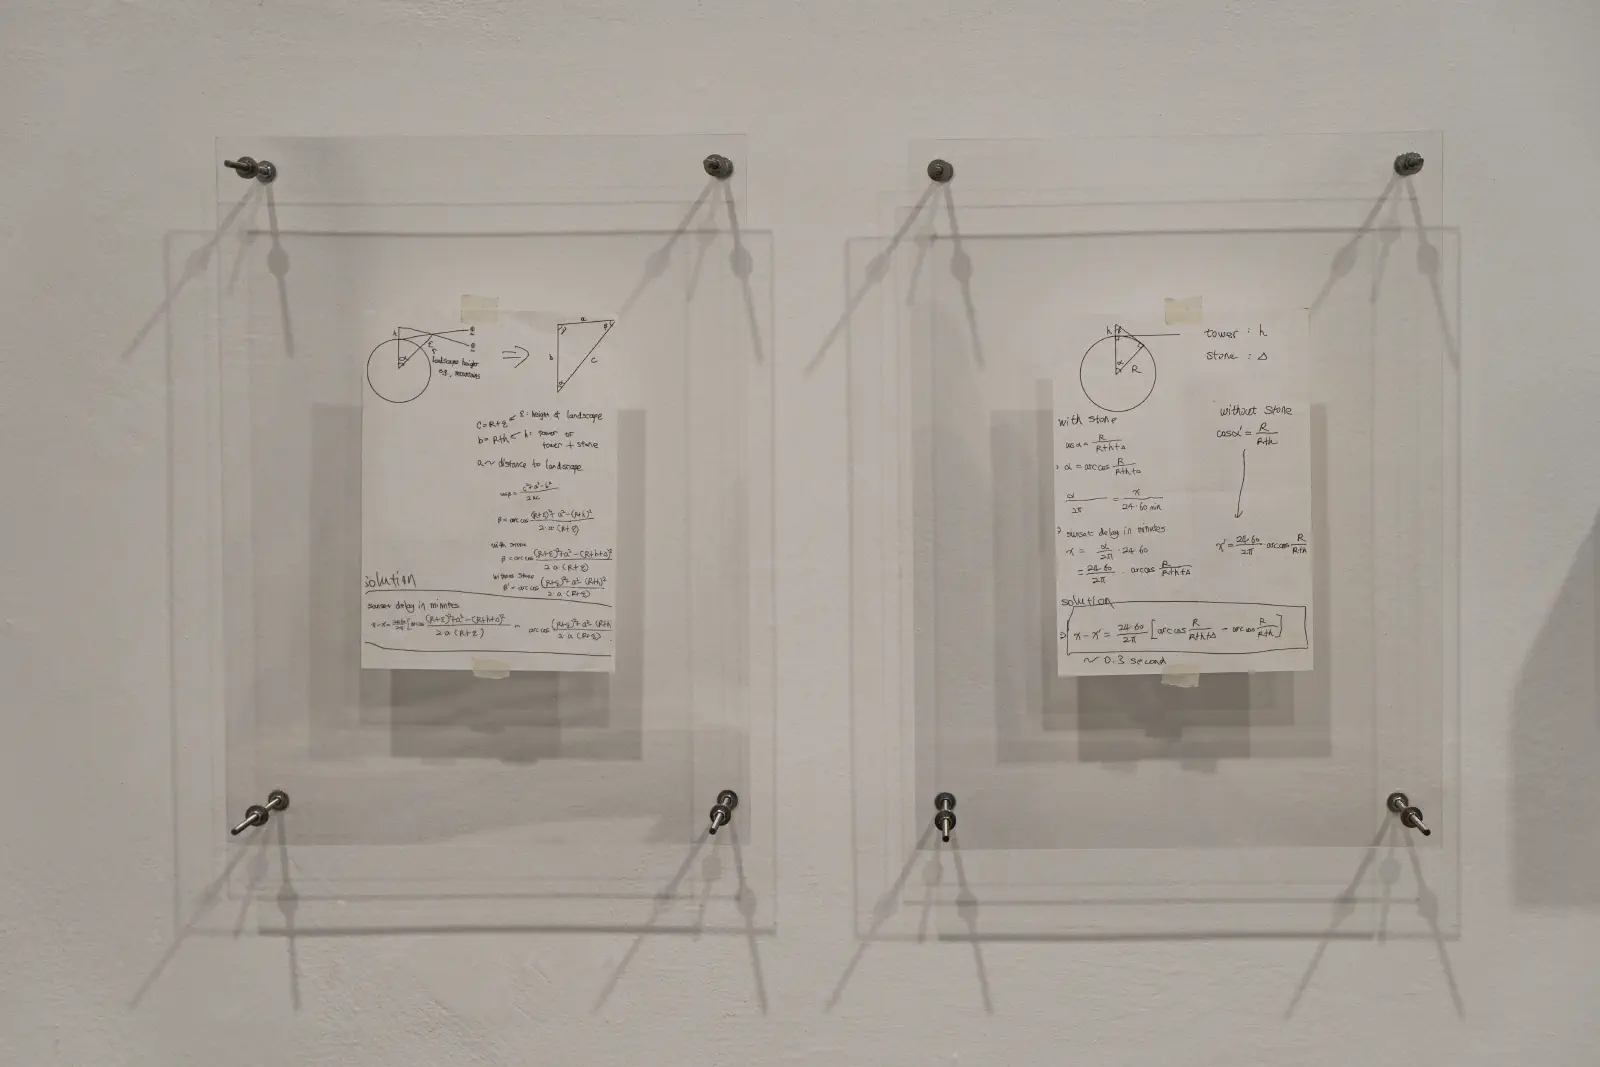 h
α
ε
landscape height
e.g., mountains
⇒
a
b
c
α
β
c = R+ε ← ε: height of landscape
b = R+h ← h: tower or
tower + stone
a ~ distance to landscape
cosβ = (c²+a²-b²)/(2ac)
β = arc cos ((R+ε)²+a²-(R+h)²)/(2·a·(R+ε))
with stone
β = arc cos ((R+ε)²+a²-(R+h+Δ)²)/(2·a·(R+ε))
without stone
β' = arc cos ((R+ε)²+a²-(R+h)²)/(2·a·(R+ε))
solution
sunset delay in minutes
x-x' = (24·60)/(2π) [arc cos ((R+ε)²+a²-(R+h+Δ)²)/(2·a·(R+ε)) - arc cos ((R+ε)²+a²-(R+h
)/(2·a·(R+ε))
h
α
R
tower : h
stone : Δ
with stone
cosα = R/(R+h+Δ)
α = arc cos R/(R+h+Δ)
α/(2π) = x/(24·60 min)
sunset delay in minutes
x = α/(2π) · 24·60
= (24·60)/(2π) · arc cos R/(R+h+Δ)
without stone
cosα' = R/(R+h)
x' = (24·60)/(2π) arc cos R/(R+h)
solution
⇒ x-x' = (24·60)/(2π) [arc cos R/(R+h+Δ) - arc cos R/(R+h)]
~ 0.3 second